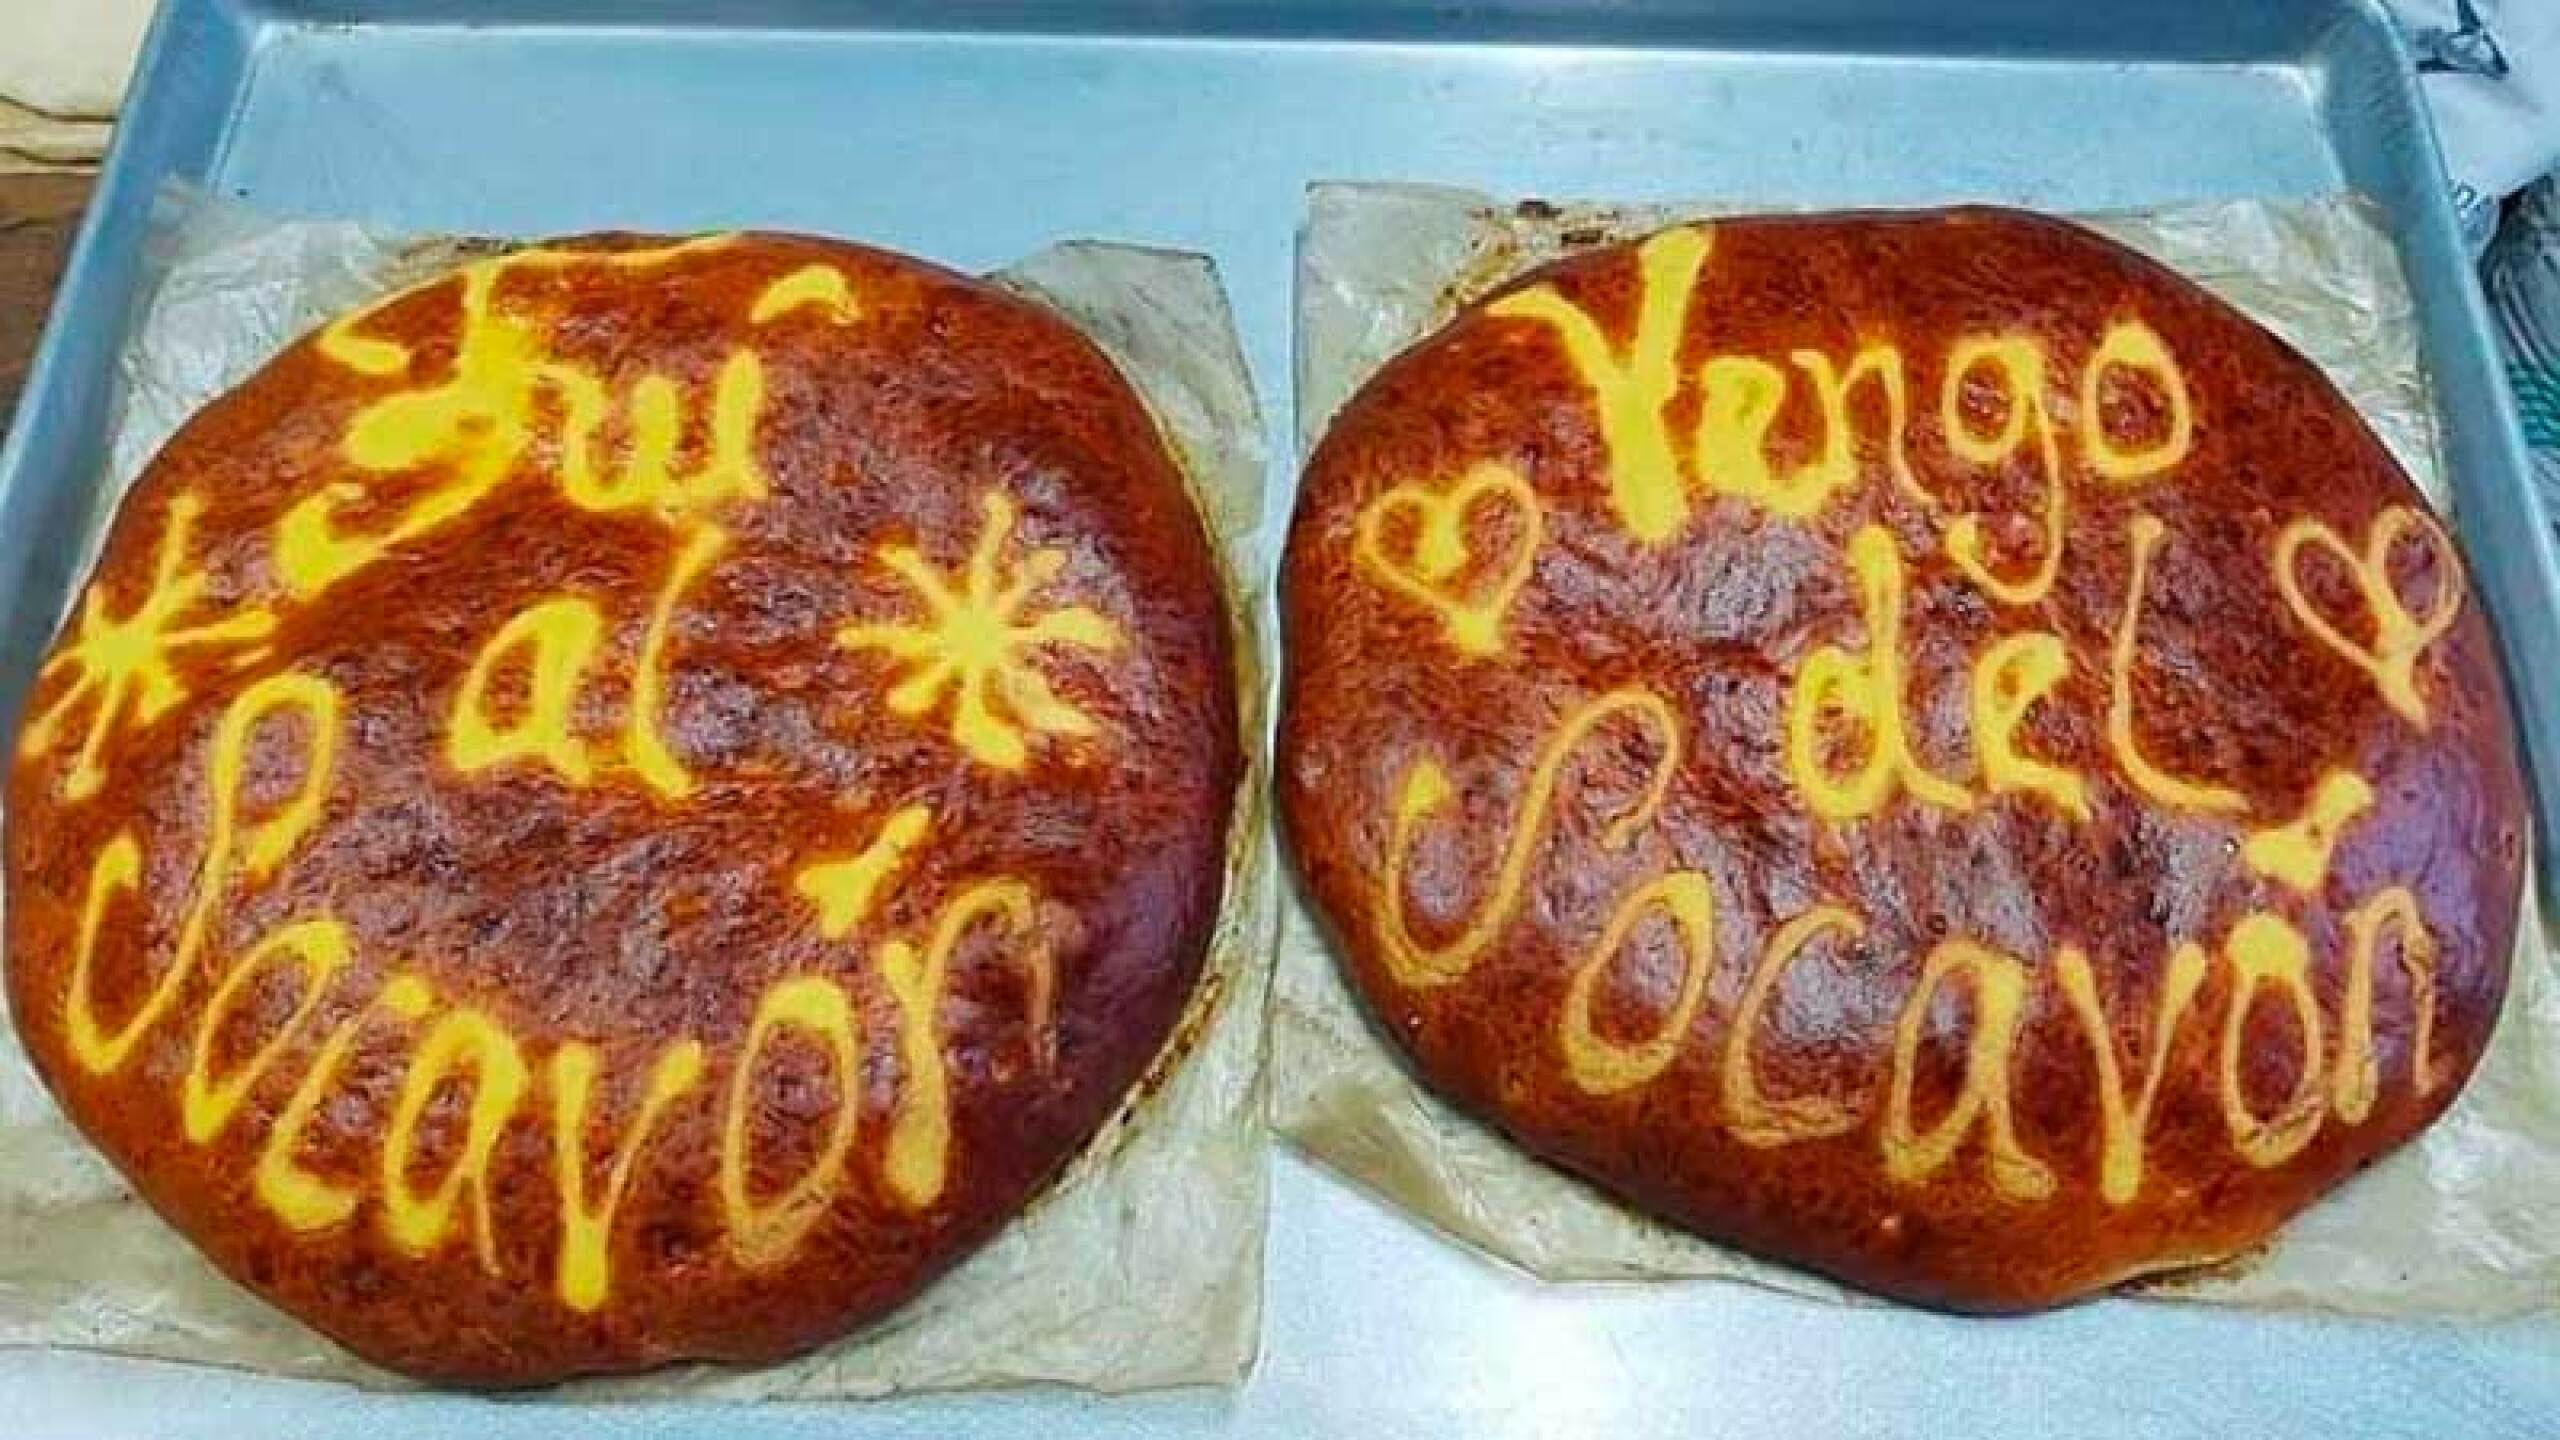 Fuí
al
Socavón
Vengo
del
Socavón